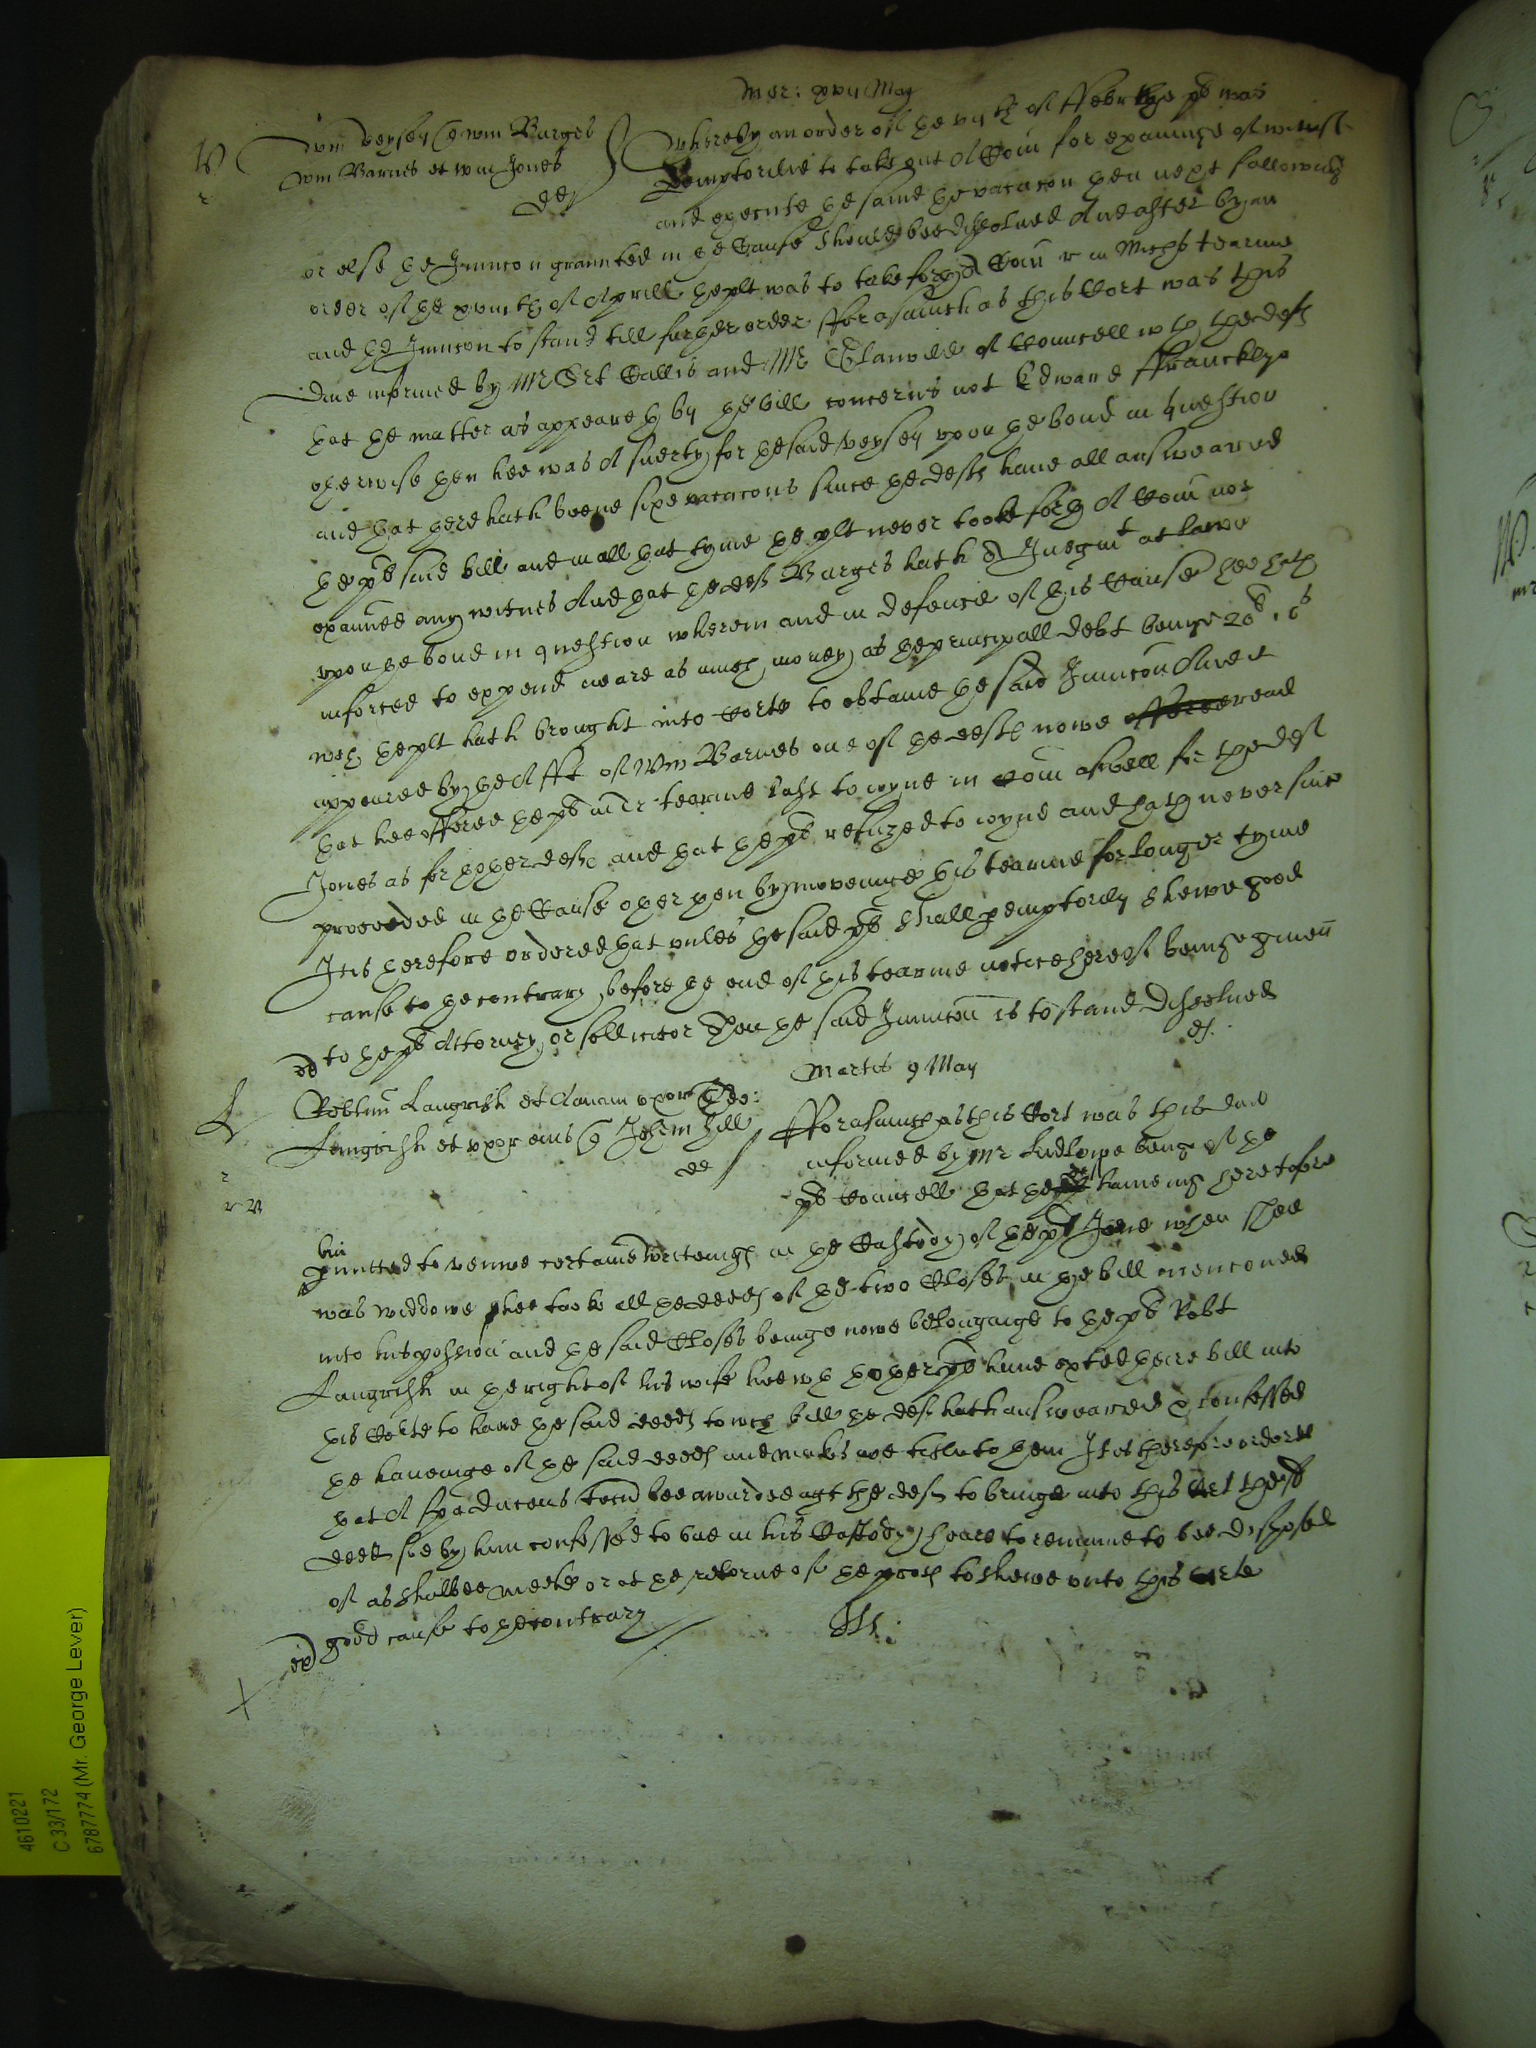 Mer: xvii May
V
Wm Veysey q Wm Burges
Wm Barnes et Wm Jones
def
Whereby an order of the vijth of Febr the pl was
pemptorilie to take out A Com for examinge of witness
and execute the same the vacacon then next followinge
or else the Iniuncon graunted in the Cause should bee dissolued And after by an
order of the xviiith of Aprill the plt was to take forth A Com r in Michs tearme
and the Iniuncon to stand till further order Fforasmuch as this Cort was this
daie informed by Mr Srt Callis and Mr Glanvile of Councell wth the defts
that the matter as appeareth by the bill concernes not Edward Ffrancklyn
otherwise then hee was A suerty for the said Veysey vpon the bond in question
and that there hath beene sixe vacacons since the defts haue all answeared
the pl said bill and in all that tyme the plt never tooke forth A Com not
examined any witnes And that the deft Burges hath A Iudgmt at lawe
vpon the bond in question wherein and in defence of this Cause hee hath
inforced to expend neare as much money as the principall debt beinge
wch the plt hath brought into Corte to obtaine the said Iniuncon And it
appeared by the Afft of Wm Barnes one of the defts nowe read
that hee offered the pl in tearme last to ioyne in Com aswell for the deft
Jones as for thother defts and that the pl refuzed to ioyne and hath never since
proceeded in the Cause other then by moveinge this tearme for longer tyme
It is therefore ordered that vnles the said pl shall pemptorily shewe good
cause to the contrary before the end of this tearme notice thereof beinge giuen
to the pl Attorney or sollicitor Then the said Iniuncon is to stand dissolued
ex
Martis 9 May
L
Robtum Langrish et Annam vxor Geo:
Langrish et vxor eius q Johem Hill
def
Fforasmuch as this Cort was this daie
informed by Mr Ludlowe beinge of the
pl Councell that the def haueing heretofore
bin
pmitted to veiwe certaine writeings in the Custody of the pl Jane when shee
was widdowe hee tooke all the deeds of the two Closes in the bill menconed
into his possion and the said Closes beinge nowe belonginge to the pl Robt
Langrish in the right of his wife hee wth thother pl haue exhited theire bill into
this Corte to haue the said deeds to wch bill the deft hath answeared & confessed
the haueinge of the said deeds and makes noe title to them It is therefore ordered
that A spa ducens tecu bee awarded agt the deft to bringe into this Cort these
deeds soe by him confessed to bee in his Custody heare to remaine to bee disposed
of as shalbee meete or at the retorne of the proces to shewe vnto this Corte
good cause to the contrary
ex
4610221
C 33/172
6787774 (Mr. George Lever)